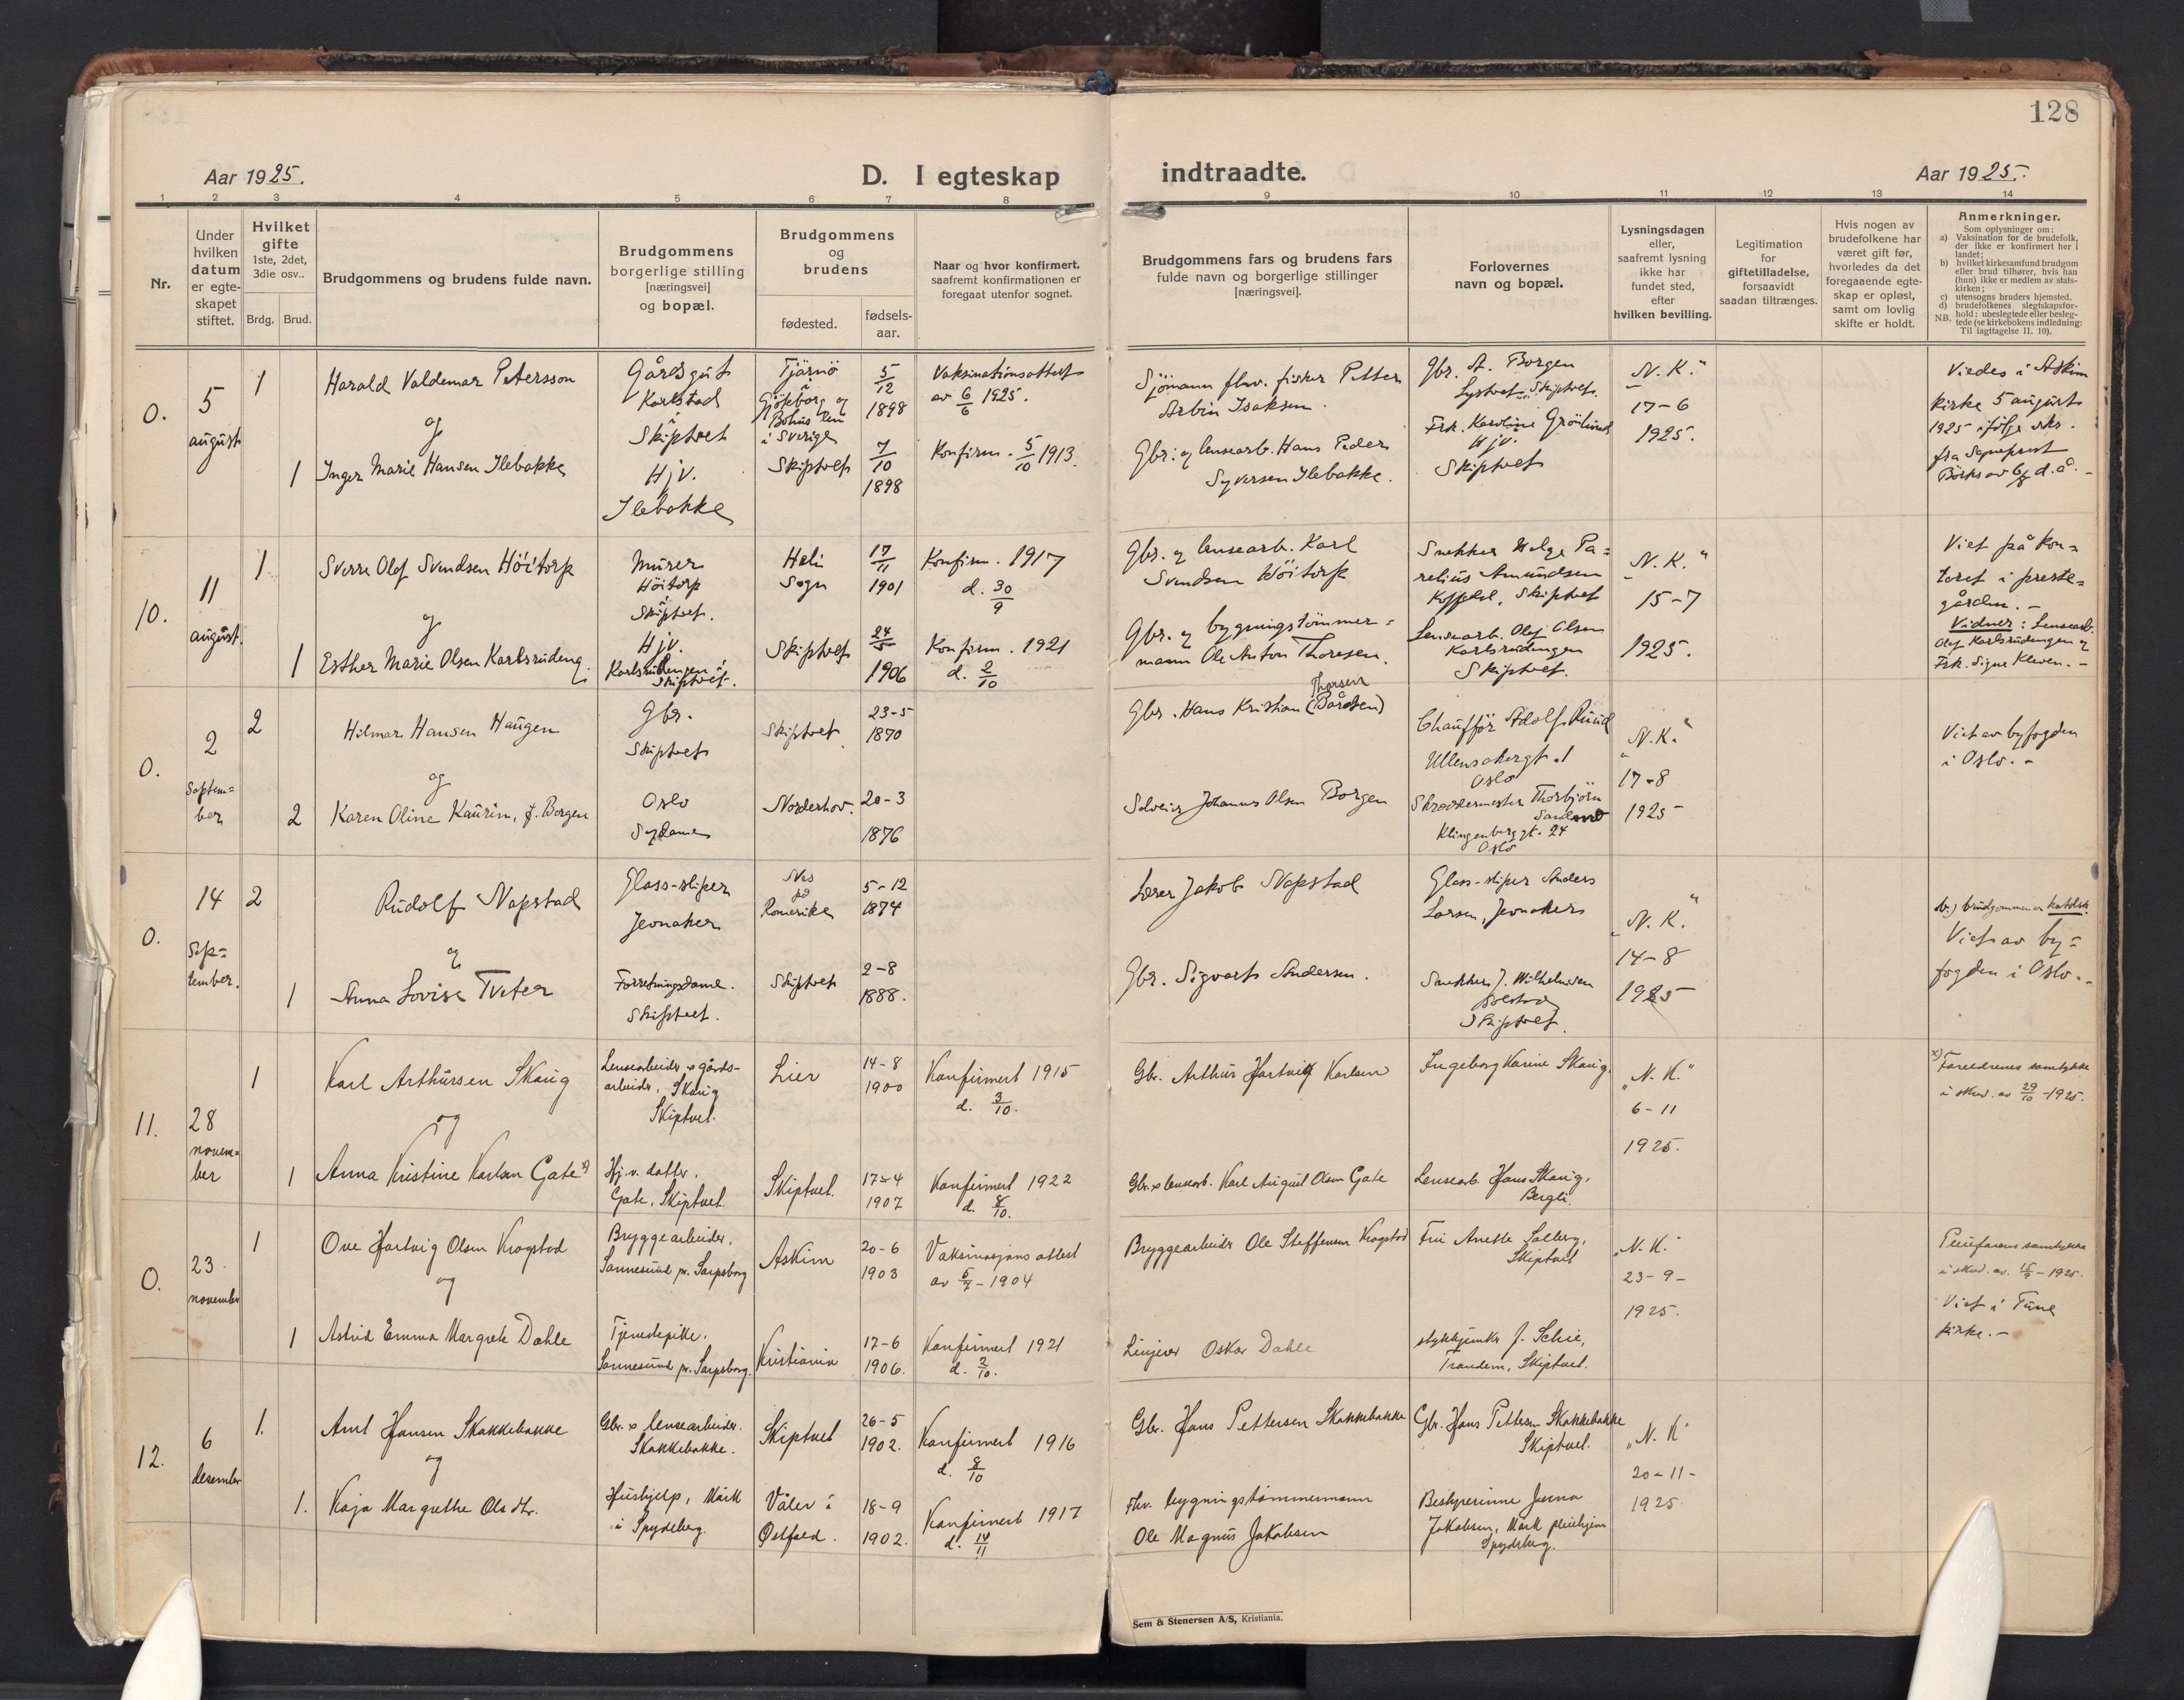 128
Aar 1925.
D. I egteskap indtraadte.
Aar 1925.
1 2 3 4 5 6 7 8 9 10 11 12 13 14
Nr.
Under
hvilken
datum
er egte-
skapet
stiftet.
Hvilket
gifte
1ste, 2det,
3die osv..
Brdg. Brud.
Brudgommens og brudens fulde navn.
Brudgommens
borgerlige stilling
[næringsvei]
og bopæl.
Brudgommens
og
brudens
fødested.
fødsels-
aar.
Naar og hvor konfirmert,
saafremt konfirmationen er
foregaat utenfor sognet.
Brudgommens fars og brudens fars
fulde navn og borgerlige stillinger
[næringsvei].
Forlovernes
navn og bopæl.
Lysningsdagen
eller,
saafremt lysning
ikke har
fundet sted,
efter
hvilken bevilling.
Legitimation
for
giftetilladelse,
forsaavidt
saadan tiltrænges.
Hvis nogen av
brudefolkene har
været gift før,
hvorledes da det
foregaaende egte-
skap er opløst,
samt om lovlig
skifte er holdt.
Anmerkninger.
Som oplysninger om:
a) Vaksination for de brudefolk,
der ikke er konfirmert her i
landet;
b) hvilket kirkesamfund brudgom
eller brud tilhører, hvis han
(hun) ikke er medlem av stats-
kirken;
c) utensogns bruders hjemsted.
d) brudefolkenes slegtskapsfor-
hold; ubeslegtede eller besleg-
NB. tede (se kirkebokens indledning:
Til iagttagelse II. 10).
0.
5
august
1
Harald Valdemar Petersson
og
1
Inger Marie Hansen Ilebakke
Gårdsgut
Karlstad
i
Skiptvet
Hjv.
Ilebakke
Tjärnö
Göteborg og
Bohus len
i Sverige
5/12
1898
Skiptvet
7/10
1898
Vaksinationsattest
av 6/6 1925.
Konfirm. 5/10 1913.
Sjömann flvv. fisker Petter
Arbin Isaksen.
Gbr. og lensearb. Hans Peder
Syversen Ilebakke.
Gbr. A. Borgen
Lystvet, Skiptvet.
Frk. Karoline Grönlund
Hjv.
Skiptvet
"N. K."
17-6
1925.
Viedes i Askim
kirke 5 august
1925 ifølge skr.
fra Sogneprest
d. å. -
10.
11
august.
1
Sverre Olof Svendsen Höitorp
og
1
Esther Marie Olsen Karlsrudeng.
Murer
Höitorp
i
Skiptvet.
Hjv.
Karlsrudengen i
Skiptvet.
Heli
Sogn
17/11
1901
Skiptvet
24/5
1906
Konfirm. 1917
d. 30/9
Konfirm. 1921
d. 2/10
Gbr. og lensearb. Karl
Svendsen Höitorp
Gbr. og bygningstömmer=
mann Ole Anton Thoresen.
Snekker Helge Pa=
relius Amundsen
Skiptvet
Lensearb. Olof Olsen
Karlsrudengen
Skiptvet.
"N. K."
15-7
1925.
Viet på kon=
toret i preste=
gården. -
Vidner: Lensearb.
Olof Karlsrudengen og
Frk. Signe Kleven. -
0.
2
Septem=
ber
2
Hilmar Hansen Haugen
og
2
Karen Oline Kaurin, f. Borgen
Gbr.
Skiptvet
Oslo
Sydame
Skiptvet
23-5
1870
Norderhov.
20-3
1876
Thorsen
Gbr. Hans Kristian (Bårdsen)
Selveier Johannes Olsen Borgen
Chauffør Adolf Ruud
Ullensakergt. 1
Oslo
Skreddermester Thorbjörn
Sandmo
Klingenberggt. 24
Oslo
"N. K."
17-8
1925
Viet av byfogden
i Oslo. -
0.
14
Sep=
tember.
2
Rudolf Napstad
og
1
Anna Lovise Tveter
Glass-sliper
Jevnaker
Forretningsdame.
Skiptvet.
Nes
på
Romerike
5-12
1874
Skiptvet
2-8
1888.
Lærer Jakob Napstad
Gbr. Sigvart Andersen.
Glass-sliper Anders
Larsen, Jevnaker
Snekker J. Wilhelmsen
Solstad
Skiptvet.
"N. K."
14-8
1925
b.) brudgommen er katolsk.
Viet av by=
fogden i Oslo. -
11.
28
novem=
ber
1
Karl Arthursen Skaug
og
1
Anna Kristine Karlsen Gate x)
Lensearbeider & gårds-
arbeider, Skaug
Skiptvet.
Hj.v. datter,
Gate, Skiptvet.
Lier
14-8
1900
Skiptvet.
17-4
1907
Konfirmert 1915
d. 3/10.
Konfirmert 1922
d. 8/10.
Gbr. Arthur Hartvig Karlsen
Gbr. & lensearb. Karl August Olsen Gate
Ingeborg Karine Skaug.
Lensearb. Hans Skaug,
Bergli.
"N. K."
6-11
1925.
x) Foreldrenes samtykke
i skud. av 29/10 -1925.
0.
23.
november
1
Ove Hartvig Olsen Krogstad
og
1
Astrid Emma Margrete Dahle
Bryggearbeider,
Sannesund pr. Sarpsborg
Tjenestepike.
Sannesund pr. Sarpsborg.
Askim
20-6
1903
Kristiania
17-6
1906.
Vaksinasjonsattest
av 5/7 - 1904
Konfirmert 1921
d. 2/10.
Bryggearbeider Ole Steffensen Krogstad
Linjeier Oskar Dahle
Fru Anette Solberg,
Skiptvet
J. Schie,
Trandem, Skiptvet.
"N. K."
23-9-
1925.
Pleiefarens samtykke
i skud. av. 15/9 - 1925.
Viet i Tune
kirke. -
12.
6
desember
1.
Arnt Hansen Skakkebakke
og
1.
Kaja Margrethe Olsdtr.
Gbr. & lensearbeider.
Skakkebakke.
Hushjelp, Mörk
i Spydeberg.
Skiptvet
26-5
1902.
Våler i
Østfold.
18-9
1902.
Konfirmert 1916
d. 8/10
Konfirmert 1917
d. 14/11
Gbr. Hans Pettersen Skakkebakke
Fhv. bygningstömmermann
Ole Magnus Jakobsen
Gbr. Hans Pettersen Skakkebakke
Skiptvet.
Bestyrerinne
Jakobsen, Mörk pleiehjem
Spydeberg.
"N. K"
20-11-
1925.
Sem & Stenersen A/S, Kristiania.